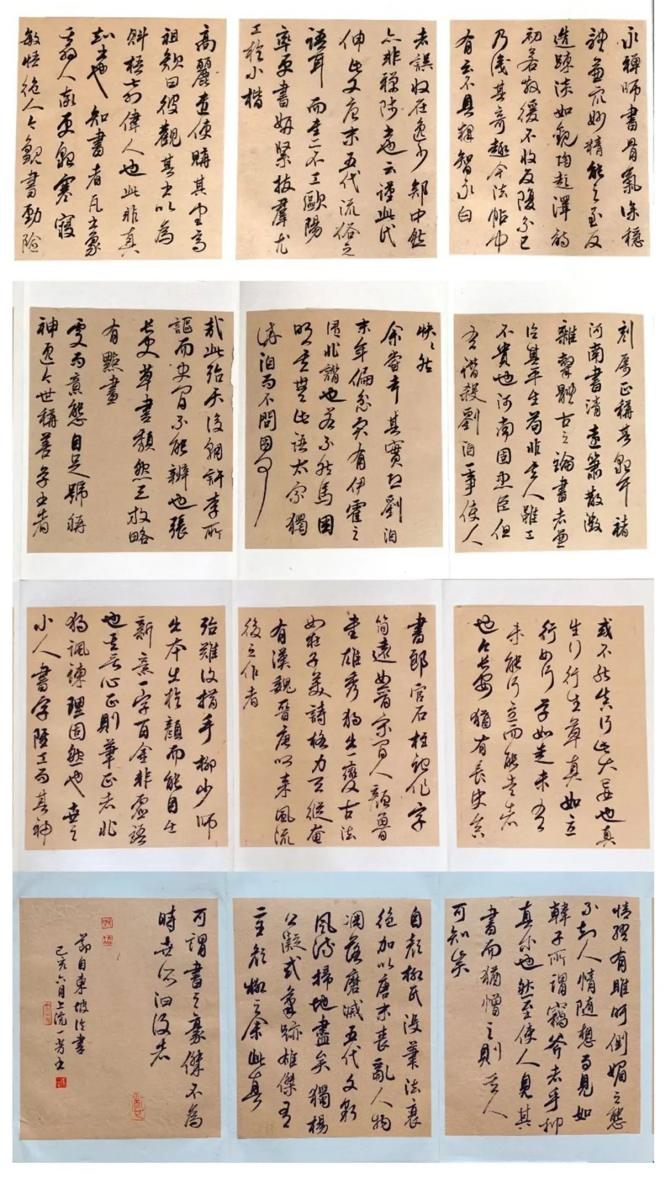 永禪師書骨氣深穩
體兼眾妙精能之至反
造疎淡如觀陶彭澤詩
初若散緩不收反覆不已
乃識其奇趣今法帖中
有云不具釋智永白
者誤收在逸少部中然
亦非禪師書也云謹此代
伸此又唐末五代流俗之
語耳而書亦不工歐陽
率更書妍緊拔羣尤
工於小楷
高麗遣使購其書高
祖歎曰彼觀其書以為
魁梧奇偉人也此非真
知書也知書者凡書象
其為人率更貌寒寢
敏悟絕人今觀書勁險
刻厲正稱其貌耳褚
河南書清遠蕭散微
雜隸體古之論書者兼
論其平生苟非其人雖工
不貴也河南固忠臣但
有譖殺劉洎一事使人
怏怏然
余嘗考其實恐劉洎
末年褊忿實有伊霍之
語非譖也若不然馬周
明其無此語太宗獨
誅洎而不問周何
哉此殆天后朝許李所
誣而史官不能辨也張
長史草書頹然天放略
有點畫
處而意態自足號稱
神逸今世稱善草書者
或不能真行此大妄也真
生行行生草真如立
行如行草如走未有
未能行立而能走者
也今長安猶有長史真
書郎官石柱記作字
簡遠如晉宋間人顏魯
公雄秀獨出一變古法
如杜子美詩格力天縱奄
有漢魏晉唐以來風流
後之作者
殆難復措手柳少師
書本出於顏而能自出
新意一字百金非虛語
也其言心正則筆正者非
獨諷諫理固然也世之
小人書字雖工而其神
情終有睢盱側媚之態
不知人情隨想而見如
韓子所謂竊斧者乎抑
真爾也然至使人見其
書而猶憎之則其人
可知矣
自顏柳氏沒筆法衰
絕加以唐末喪亂人物
凋落磨滅五代文彩
風流掃地盡矣獨楊
公凝式筆跡雄傑有
二王顏柳之餘此真
可謂書之豪傑不為
時世所汩沒者
節自東坡論書
己亥六月上浣一芳書